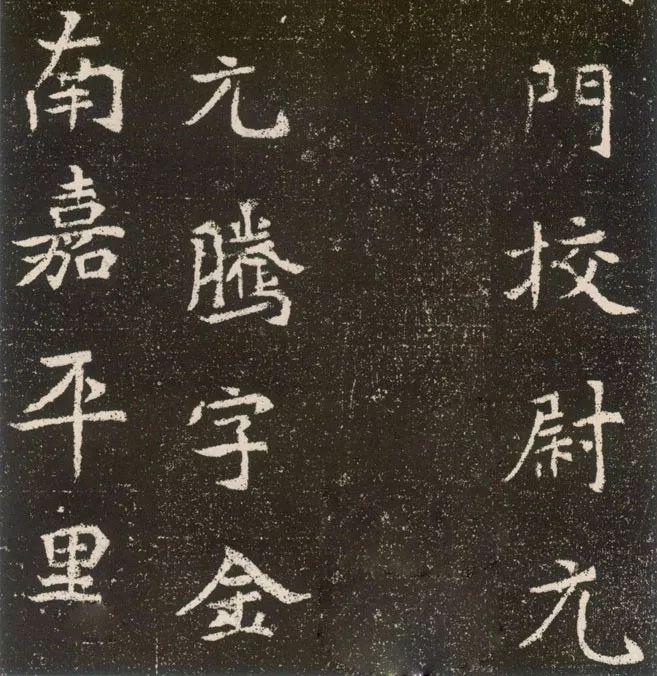 門校尉元
元騰字金
南嘉平里